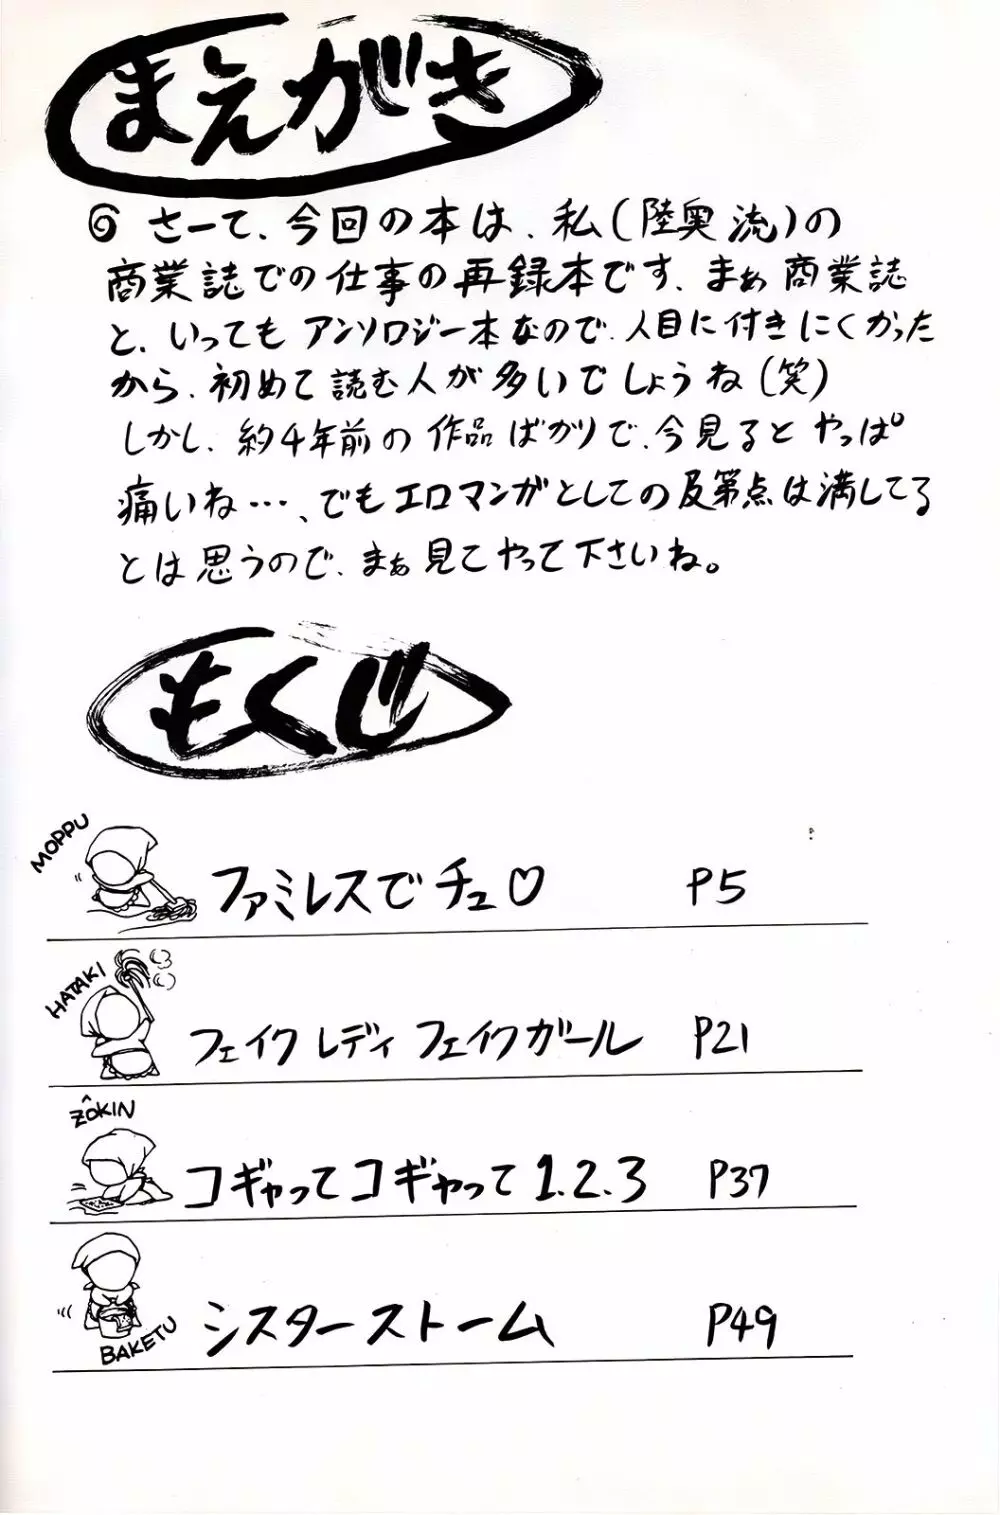 まえがき
◎ さーて、今回の本は、私(陸奥流)の
商業誌での仕事の再録本です、まぁ商業誌
と、いってもアンソロジー本なので、人目に付きにくかった
から、初めて読む人が多いでしょうね(笑)
しかし、約4年前の作品ばかりで、今見るとやっぱ
痛いね…、でもエロマンガとしての及第点は満してる
とは思うので、まぁ見てやって下さいね。
もくじ
MOPPU
ファミレスでチュ♡ P5
HATAKI
フェイクレディ フェイクガール P21
ZÔKIN
コギャってコギャって1.2.3 P37
シスターストーム P49
BAKETU